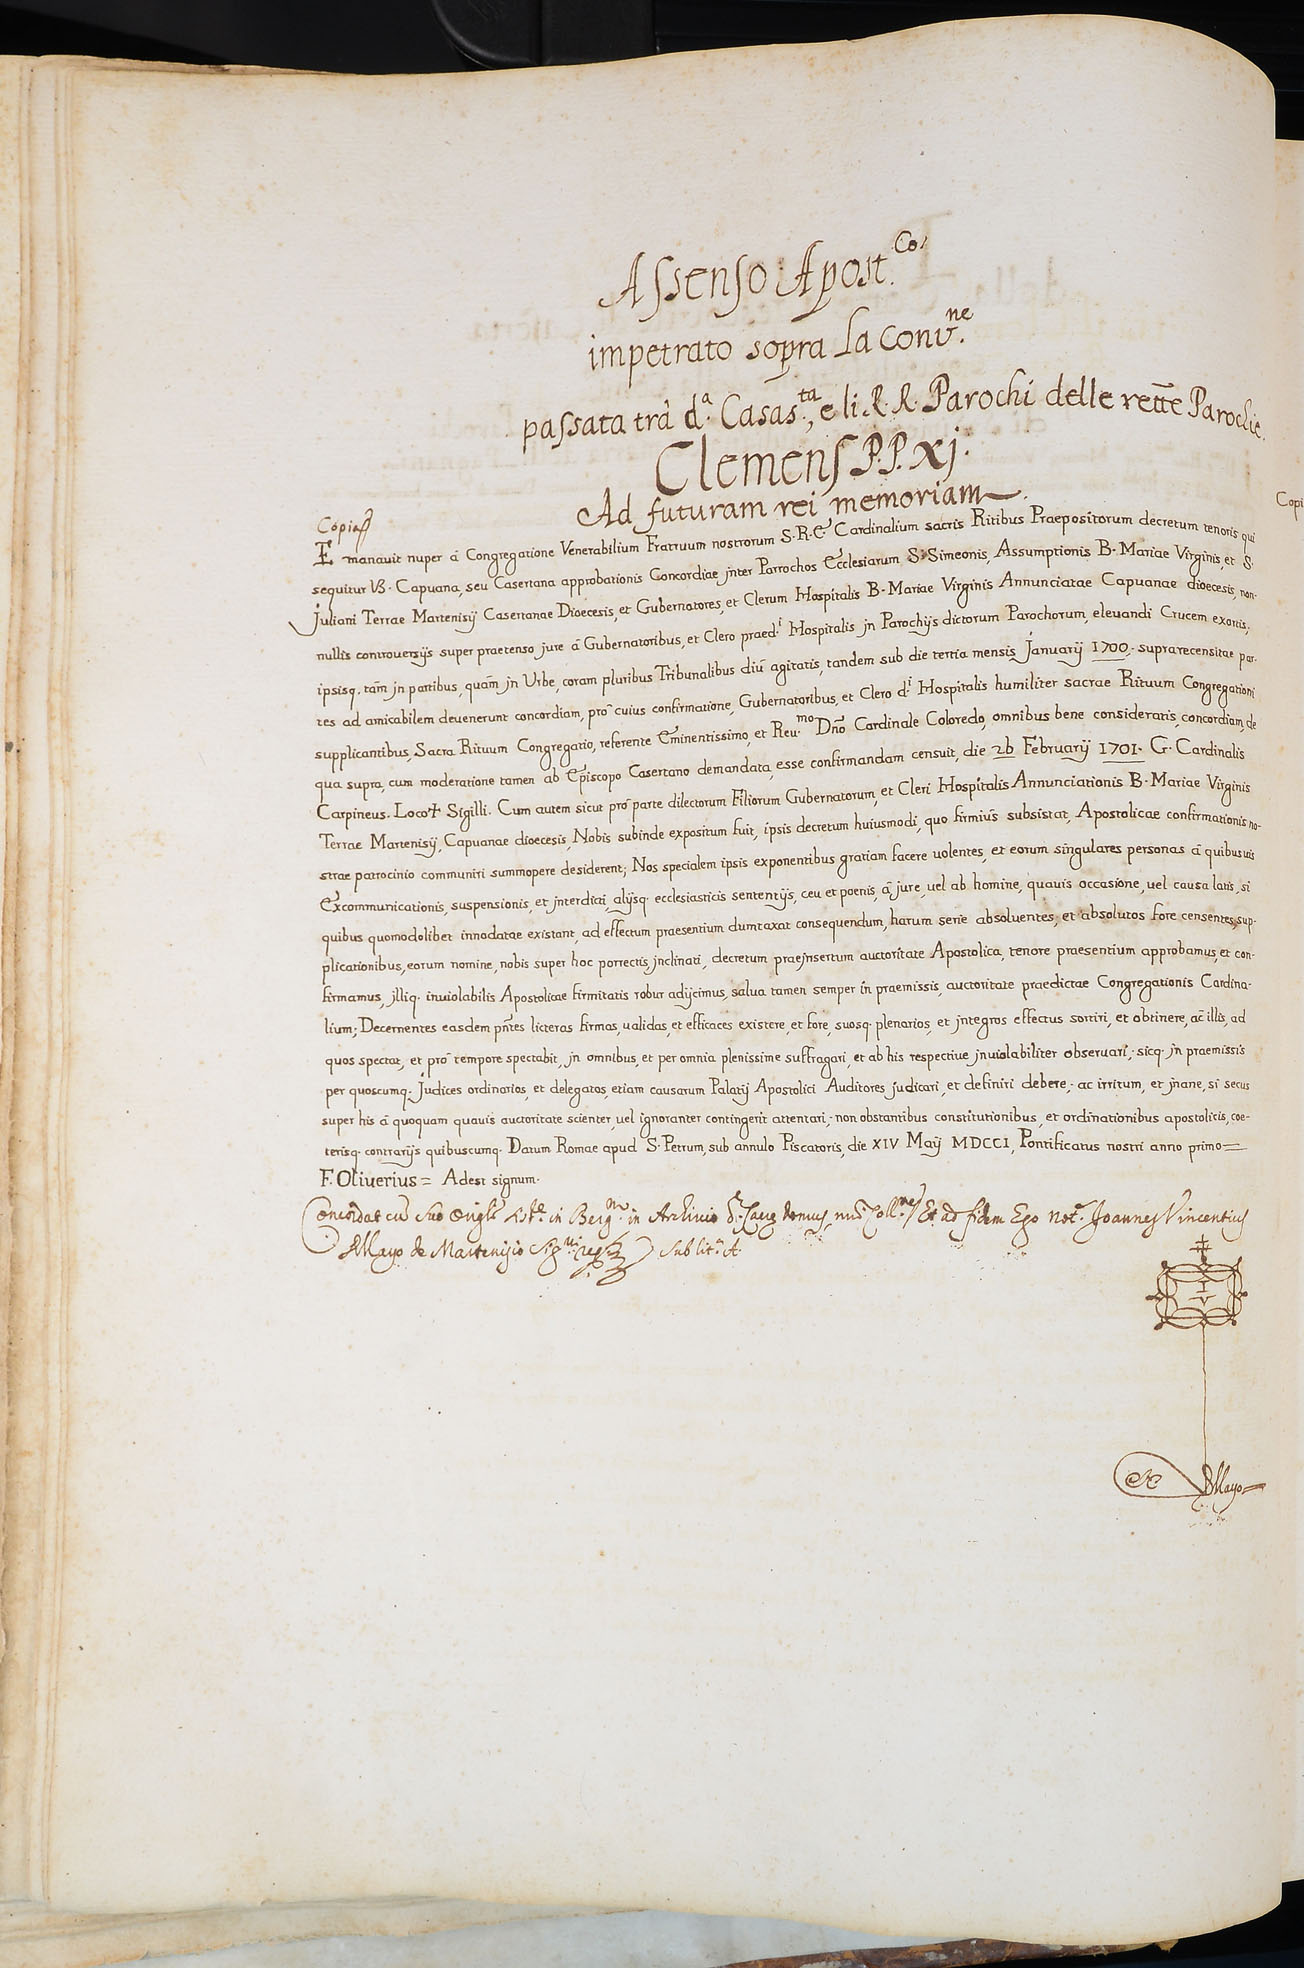 Assenso Apost.co
impetrato sopra la Conu.ne
passata trà d.a Casas.ta, e li R.R. Parochi delle rett̄e Parochie.
Clemens P.P. XI.
Ad futuram rei memoriam
Copia
Emanauit nuper à Congregatione Venerabilium Fratruum nostrorum S.R.E. Cardinalium sacris Ritibus Praepositorum decretum tenoris qui
sequitur VȜ. Capuana, seu Casertana approbationis Concordiae jnter Parrochos Ecclesiarum S. Simeonis, Assumptionis B. Mariae Virginis, et S.
Juliani Terrae Martenisij Casertanae Dioecesis, et Gubernatores, et Clerum Hospitalis B. Mariae Virginis Annunciatae Capuanae dioecesis, non-
nullis controuersijs super praetenso jure à Gubernatoribus, et Clero praed.i Hospitalis jn Parochijs dictorum Parochorum, eleuandi Crucem exortis,
ipsisq. tàm jn partibus, quàm jn Urbe, coram pluribus Tribunalibus diù agitatis, tandem sub die tertia mensis Januarij 1700. suprarecensitae par-
tes ad amicabilem deuenerunt concordiam, prò cuius confirmatione, Gubernatoribus, et Clero d.i Hospitalis humiliter sacrae Rituum Congregationi
supplicantibus, Sacra Rituum Congregatio, referente Eminentissimo, et Reu.mo Dn̄o Cardinale Coloredo, omnibus bene consideratis, concordiam, de
qua supra, cum moderatione tamen ab Episcopo Casertano demandata, esse confirmandam censuit, die 26 Februarij 1701. G. Cardinalis
Carpineus. Loco + Sigilli. Cum autem sicut prò parte dilectorum Filiorum Gubernatorum, et Cleri Hospitalis Annunciationis B. Mariae Virginis
Terrae Martenisij, Capuanae dioecesis, Nobis subinde expositum fuit, ipsis decretum huiusmodi, quo firmiùs subsistat, Apostolicae confirmationis no-
strae patrocinio communiri summopere desiderent; Nos specialem ipsis exponentibus gratiam facere uolentes, et eorum singulares personas à quibusuis
Excommunicationis, suspensionis, et jnterdicti, alijsq. ecclesiasticis sententijs, ceu et poenis, à jure, uel ab homine, quauis occasione, uel causa latis, si
quibus quomodolibet innodatae existant, ad effectum praesentium dumtaxat consequendum, harum serie absoluentes, et absolutos fore censentes, sup-
plicationibus, eorum nomine, nobis super hoc porrectis, jnclinati, decretum praejnsertum auctoritate Apostolica, tenore praesentium approbamus, et con-
firmamus, jlliq. inuiolabilis Apostolicae firmitatis robur adijcimus, salua tamen semper in praemissis, auctoritate praedictae Congregationis Cardina-
lium; Decernentes easdem pn̄tes licteras firmas, ualidas, et efficaces existere, et fore, suosq. plenarios, et jntegros effectus sortiri, et obtinere, ac illis, ad
quos spectat, et prò tempore spectabit, jn omnibus, et per omnia plenissime suffragari, et ab his respectiue jnuiolabiliter obseruari; sicq. jn praemissis
per quoscumq. Judices ordinarios, et delegatos, etiam causarum Palatij Apostolici Auditores judicari, et definiri debere; ac irritum, et jnane, si secus
super his à quoquam quauis auctoritate scienter, uel ignoranter contingerit attentari; non obstantibus constitutionibus, et ordinationibus apostolicis, coe-
terisq. contrarijs quibuscumq. Datum Romae apud S. Petrum, sub annulo Piscatoris, die XIV Maij MDCCI, Pontificatus nostri anno primo=
F. Oliuerius = Adest signum.
Concordat cū suo in in Archiuio domus, Et ad fidem Ego Not.r Joannes Vincentius
de Mayo de Martenisio sub lit.a A.
I
V
de Mayo
Copi